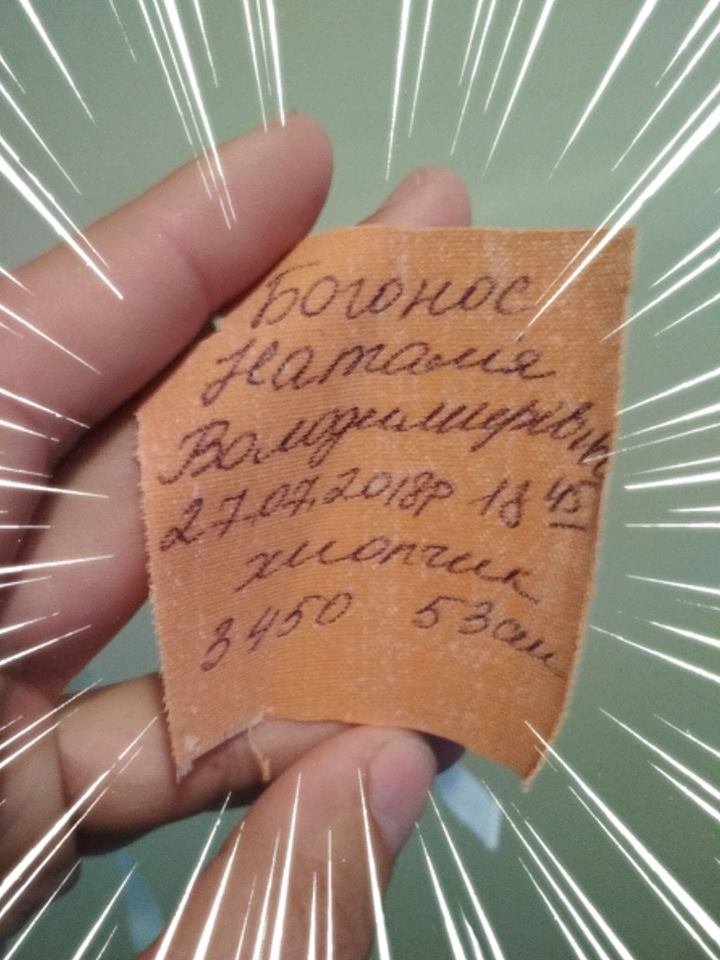 Богонос
Наталія
Володимирівн
27.07.2018р 18 45
хлопчик
3450 53см